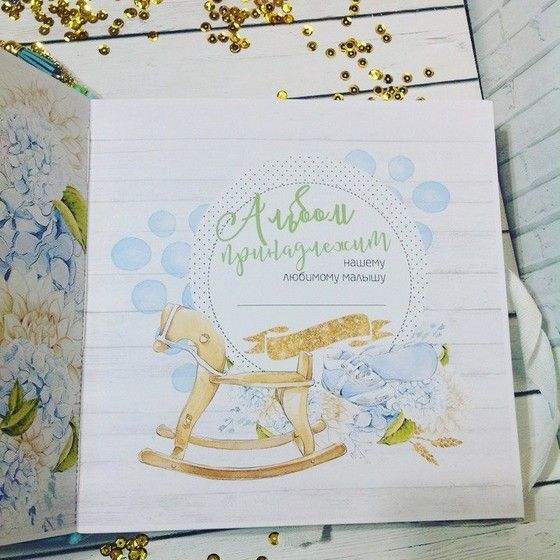 Альбом
принадлежит
нашему
любимому малышу